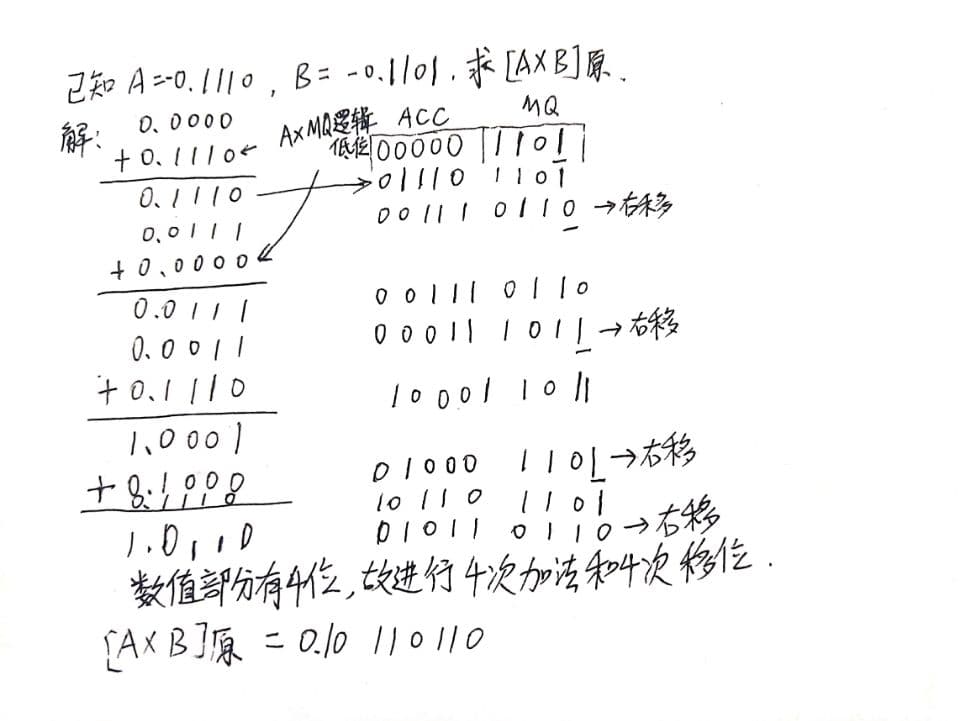 已知 A=-0.1110, B= -0.1101. 求[A×B]原.
解:
0.0000
+0.1110
0.1110
0.0111
+0.0000
0.0111
0.0011
+0.1110
1.0001
0.1000
+0.1110
1.0110
A×MQ逻辑低位
ACC MQ
00000 1101
01110 1101
00111 0110 →右移
00111 0110
00011 1011 →右移
10001 1011
01000 1101 →右移
10110 1101
01011 0110 →右移
数值部分有4位,故进行4次加法和4次移位.
[A×B]原 = 0.10110110